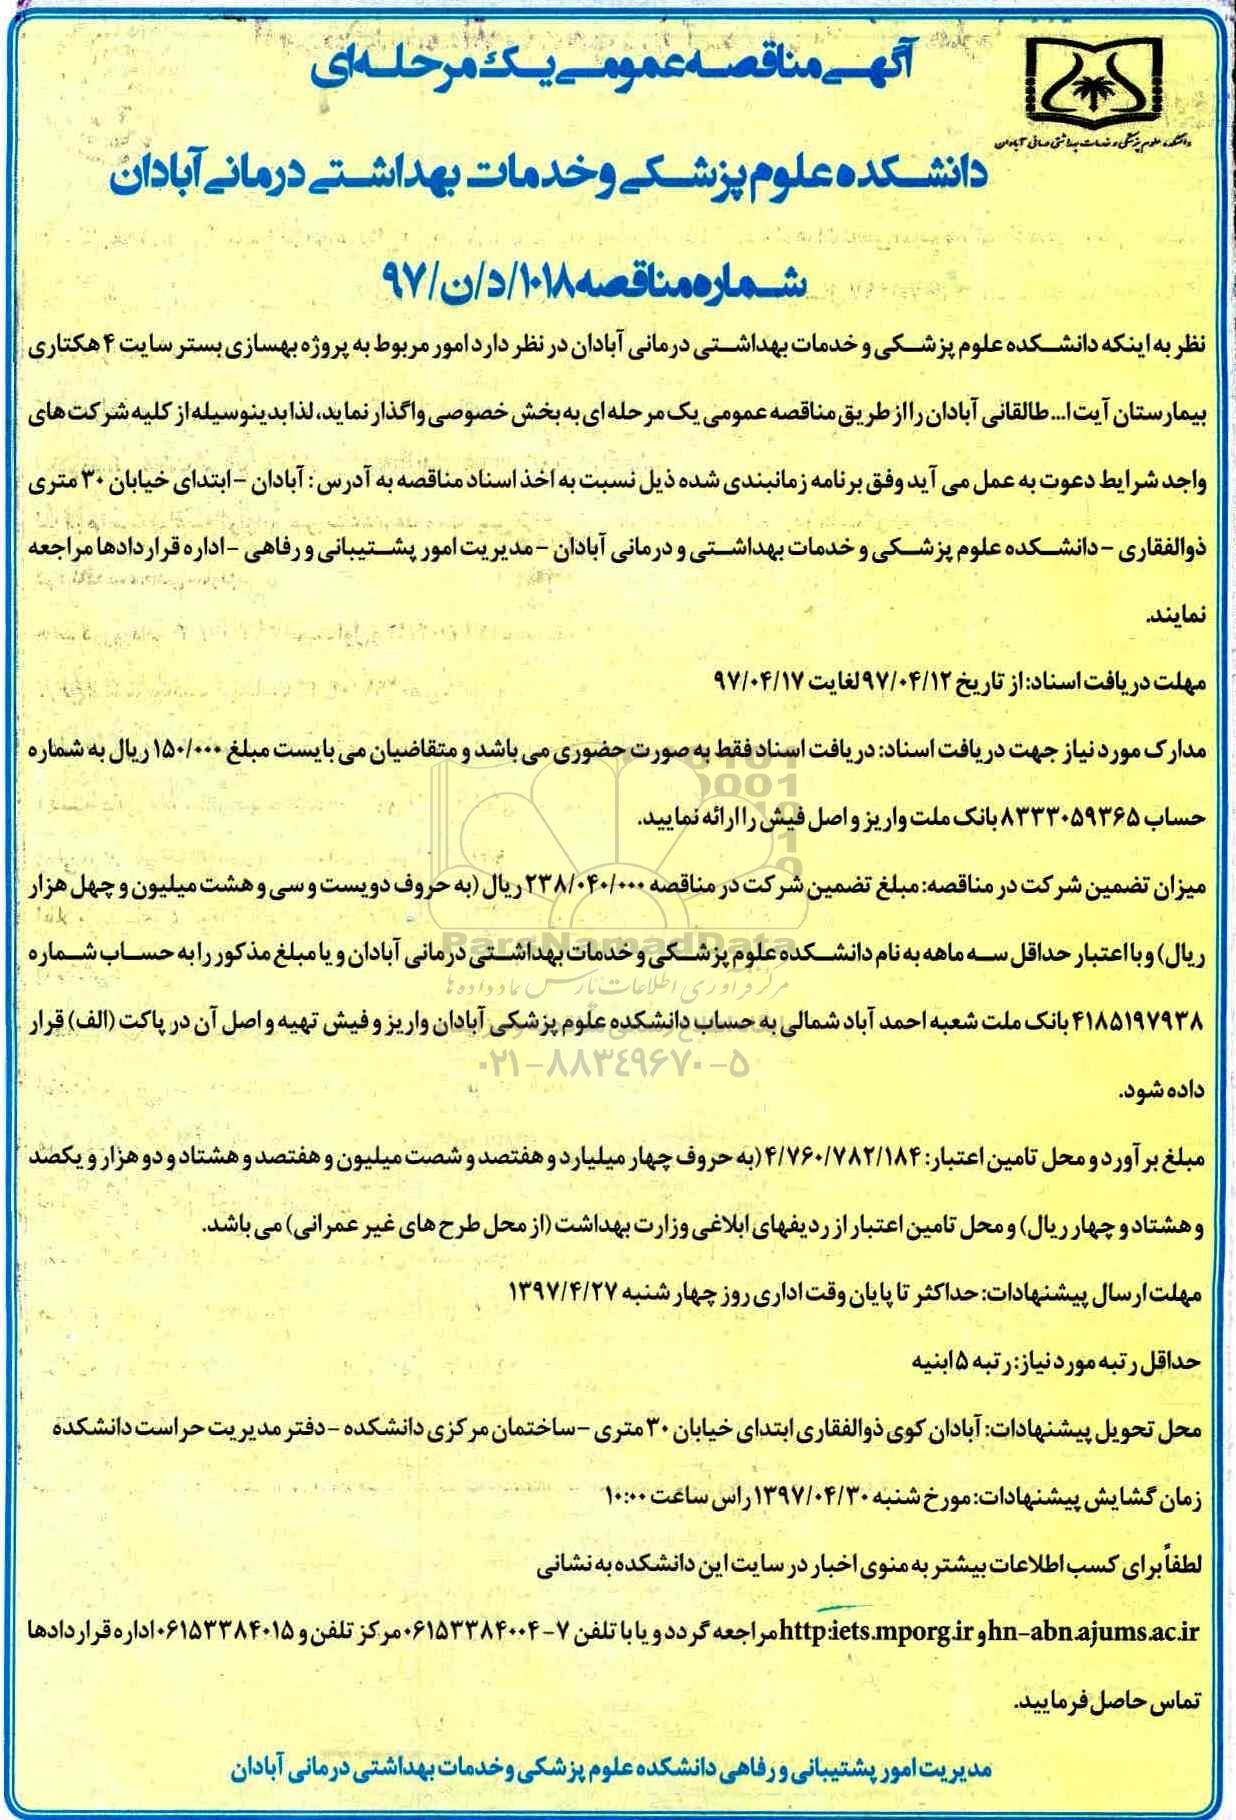 آگهی مناقصه عمومی یک مرحله ای
دانشکده علوم پزشکی و خدمات بهداشتی درمانی آبادان
دانشکده علوم پزشکی و خدمات بهداشتی درمانی آبادان
شماره مناقصه ۱۰۱۸/د/ن/۹۷
نظر به اینکه دانشکده علوم پزشکی و خدمات بهداشتی درمانی آبادان در نظر دارد امور مربوط به پروژه بهسازی بستر سایت ۴ هکتاری
بیمارستان آیت ا... طالقانی آبادان را از طریق مناقصه عمومی یک مرحله ای به بخش خصوصی واگذار نماید، لذا بدینوسیله از کلیه شرکت های
واجد شرایط دعوت به عمل می آید وفق برنامه زمانبندی شده ذیل نسبت به اخذ اسناد مناقصه به آدرس : آبادان - ابتدای خیابان ۳۰ متری
ذوالفقاری - دانشکده علوم پزشکی و خدمات بهداشتی و درمانی آبادان - مدیریت امور پشتیبانی و رفاهی - اداره قراردادها مراجعه
نمایند.
مهلت دریافت اسناد: از تاریخ ۹۷/۰۴/۱۲ لغایت ۹۷/۰۴/۱۷
مدارک مورد نیاز جهت دریافت اسناد: دریافت اسناد فقط به صورت حضوری می باشد و متقاضیان می بایست مبلغ ۱۵۰/۰۰۰ ریال به شماره
حساب ۸۳۳۳۰۵۹۳۶۵ بانک ملت واریز و اصل فیش را ارائه نمایید.
میزان تضمین شرکت در مناقصه: مبلغ تضمین شرکت در مناقصه ۲۳۸/۰۴۰/۰۰۰ ریال (به حروف دویست و سی و هشت میلیون و چهل هزار
ParsNamadData
ریال) و با اعتبار حداقل سه ماهه به نام دانشکده علوم پزشکی و خدمات بهداشتی درمانی آبادان و یا مبلغ مذکور را به حساب شماره
مرکز فرآوری اطلاعات پارس نماد داده ها
۴۱۸۵۱۹۷۹۳۸ بانک ملت شعبه احمد آباد شمالی به حساب دانشکده علوم پزشکی آبادان واریز و فیش تهیه و اصل آن در پاکت (الف) قرار
۰۲۱-۸۸۳۴۹۶۷۰-۵
داده شود.
مبلغ برآورد و محل تامین اعتبار: ۴/۷۶۰/۷۸۲/۱۸۴ (به حروف چهار میلیارد و هفتصد و شصت میلیون و هفتصد و هشتاد و دو هزار و یکصد
و هشتاد و چهار ریال) و محل تامین اعتبار از ردیفهای ابلاغی وزارت بهداشت (از محل طرح های غیر عمرانی) می باشد.
مهلت ارسال پیشنهادات: حداکثر تا پایان وقت اداری روز چهارشنبه ۱۳۹۷/۴/۲۷
حداقل رتبه مورد نیاز: رتبه ۵ ابنیه
محل تحویل پیشنهادات: آبادان کوی ذوالفقاری ابتدای خیابان ۳۰ متری - ساختمان مرکزی دانشکده - دفتر مدیریت حراست دانشکده
زمان گشایش پیشنهادات: مورخ شنبه ۱۳۹۷/۰۴/۳۰ راس ساعت ۱۰:۰۰
لطفاً برای کسب اطلاعات بیشتر به منوی اخبار در سایت این دانشکده به نشانی
hn-abn.ajums.ac.ir و http:iets.mporg.ir مراجعه گردد و یا با تلفن ۷-۰۶۱۵۳۳۸۴۰۰۴ مرکز تلفن و ۰۶۱۵۳۳۸۴۰۱۵ اداره قراردادها
تماس حاصل فرمایید.
مدیریت امور پشتیبانی و رفاهی دانشکده علوم پزشکی و خدمات بهداشتی درمانی آبادان